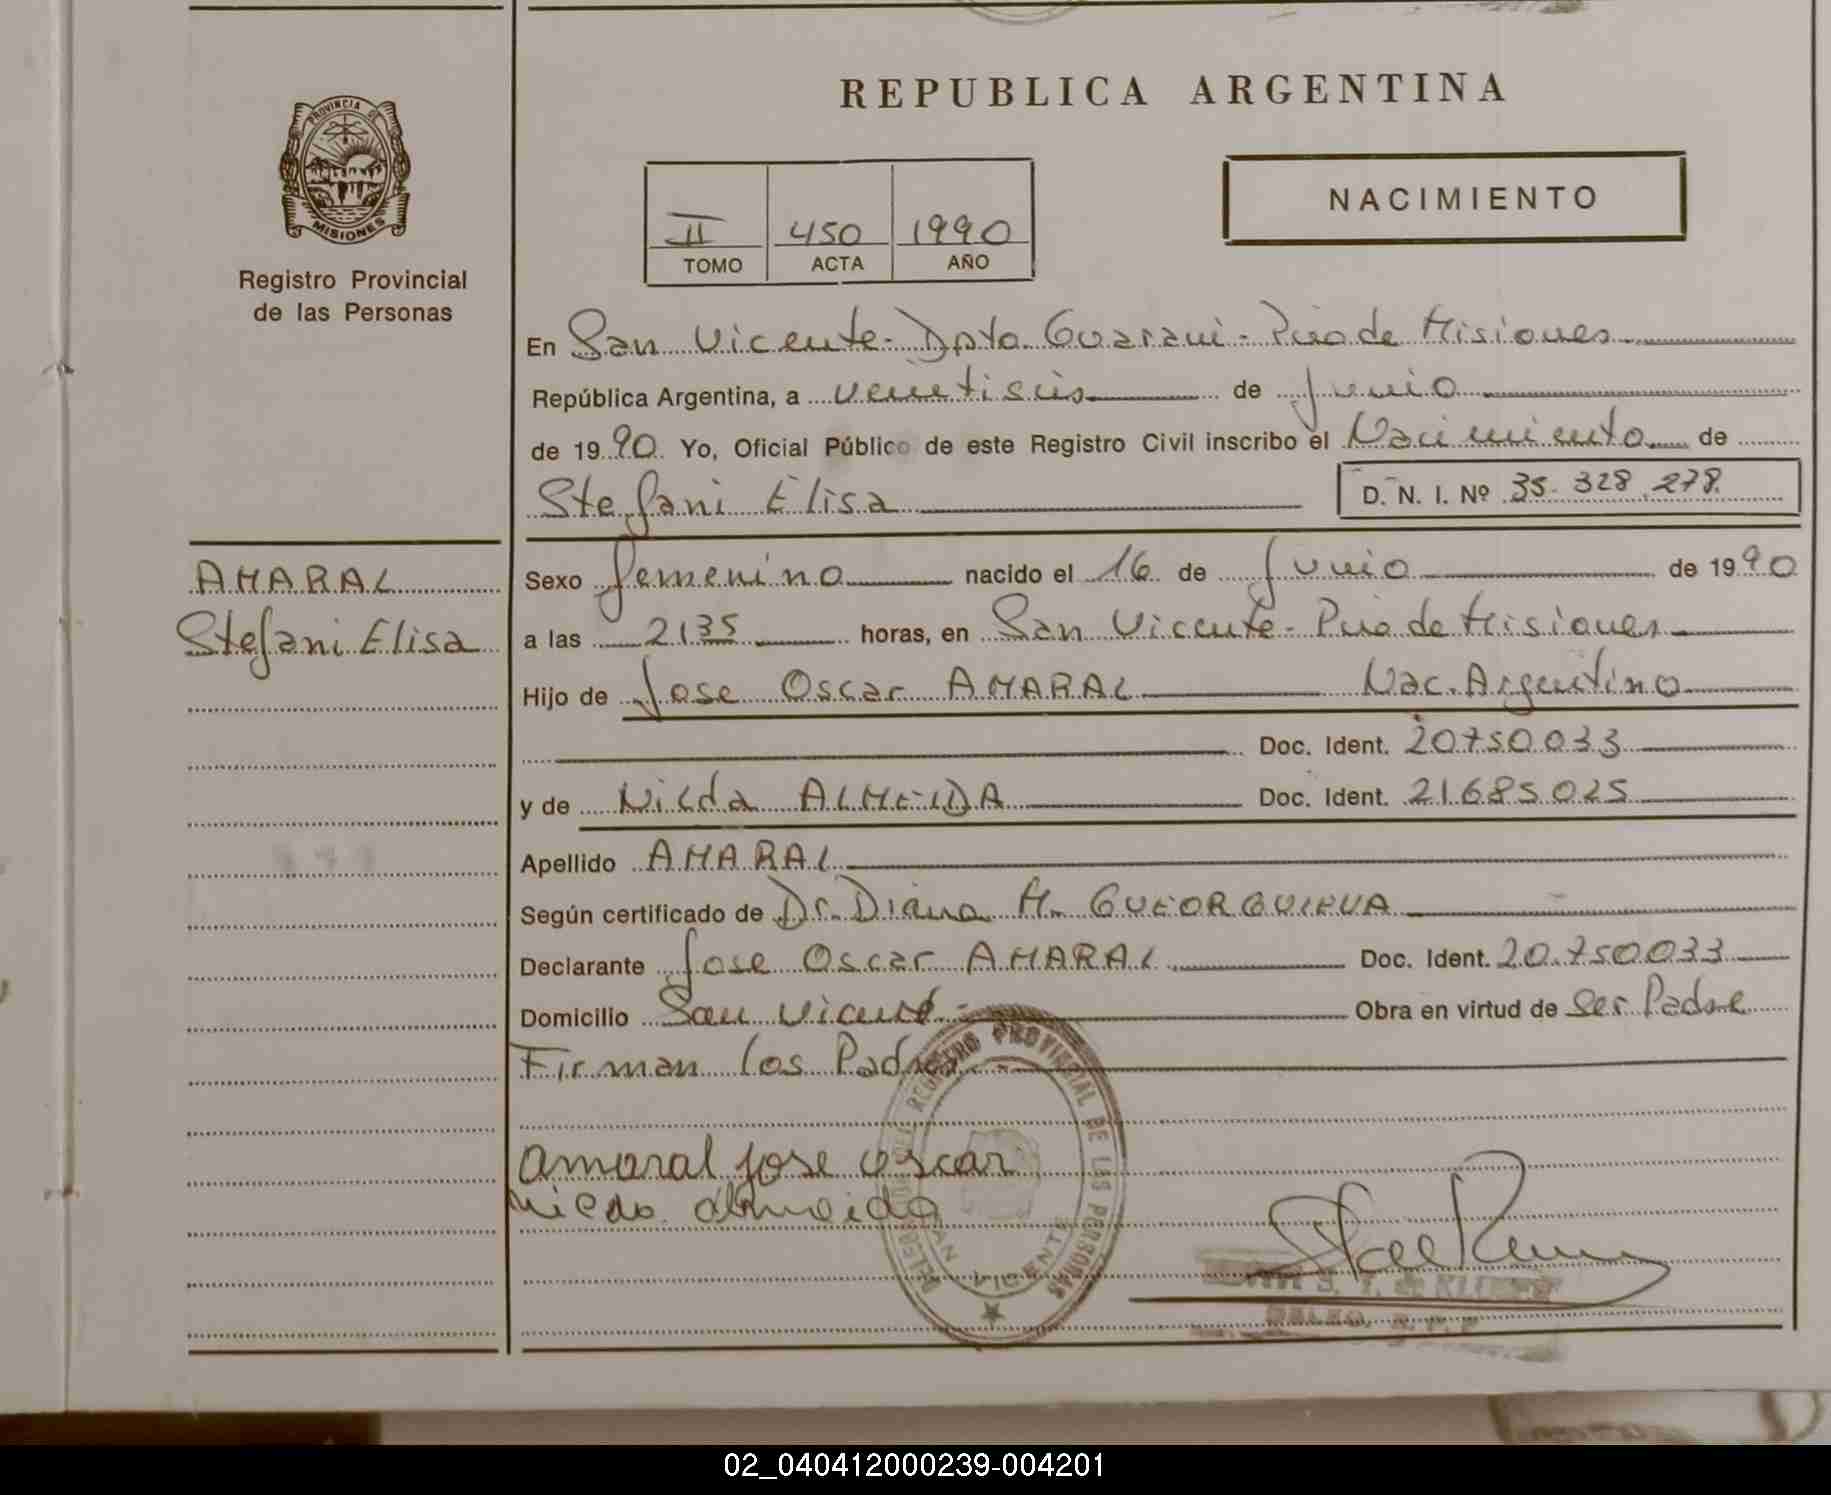 REPUBLICA ARGENTINA
PROVINCIA DE
MISIONES
Registro Provincial
de las Personas
NACIMIENTO
II 450 1990
TOMO ACTA AÑO
En San Vicente - Dpto Guarani - Pcia de Misiones
República Argentina, a veintiseis de Junio
de 1990 Yo, Oficial Público de este Registro Civil inscribo el Nacimiento de
Stefani Elisa D. N. I. Nº 35.328.278
AMARAL
Stefani Elisa
Sexo femenino nacido el 16 de Junio de 1990
a las 2135 horas, en San Vicente - Pcia de Misiones
Hijo de Jose Oscar AMARAL Nac. Argentino
Doc. Ident. 20750033
y de Nilda ALMEIDA Doc. Ident. 21685025
Apellido AMARAL
Según certificado de Dr. Diana M. GUEORGUIEVA
Declarante Jose Oscar AMARAL Doc. Ident. 20.750033
Domicilio San Vicente - Obra en virtud de Ser Padre
Firman los Padres.-
Amaral Jose Oscar
Nilda Almeida
REGISTRO PROVINCIAL DE LAS PERSONAS
SAN VICENTE
02_040412000239-004201